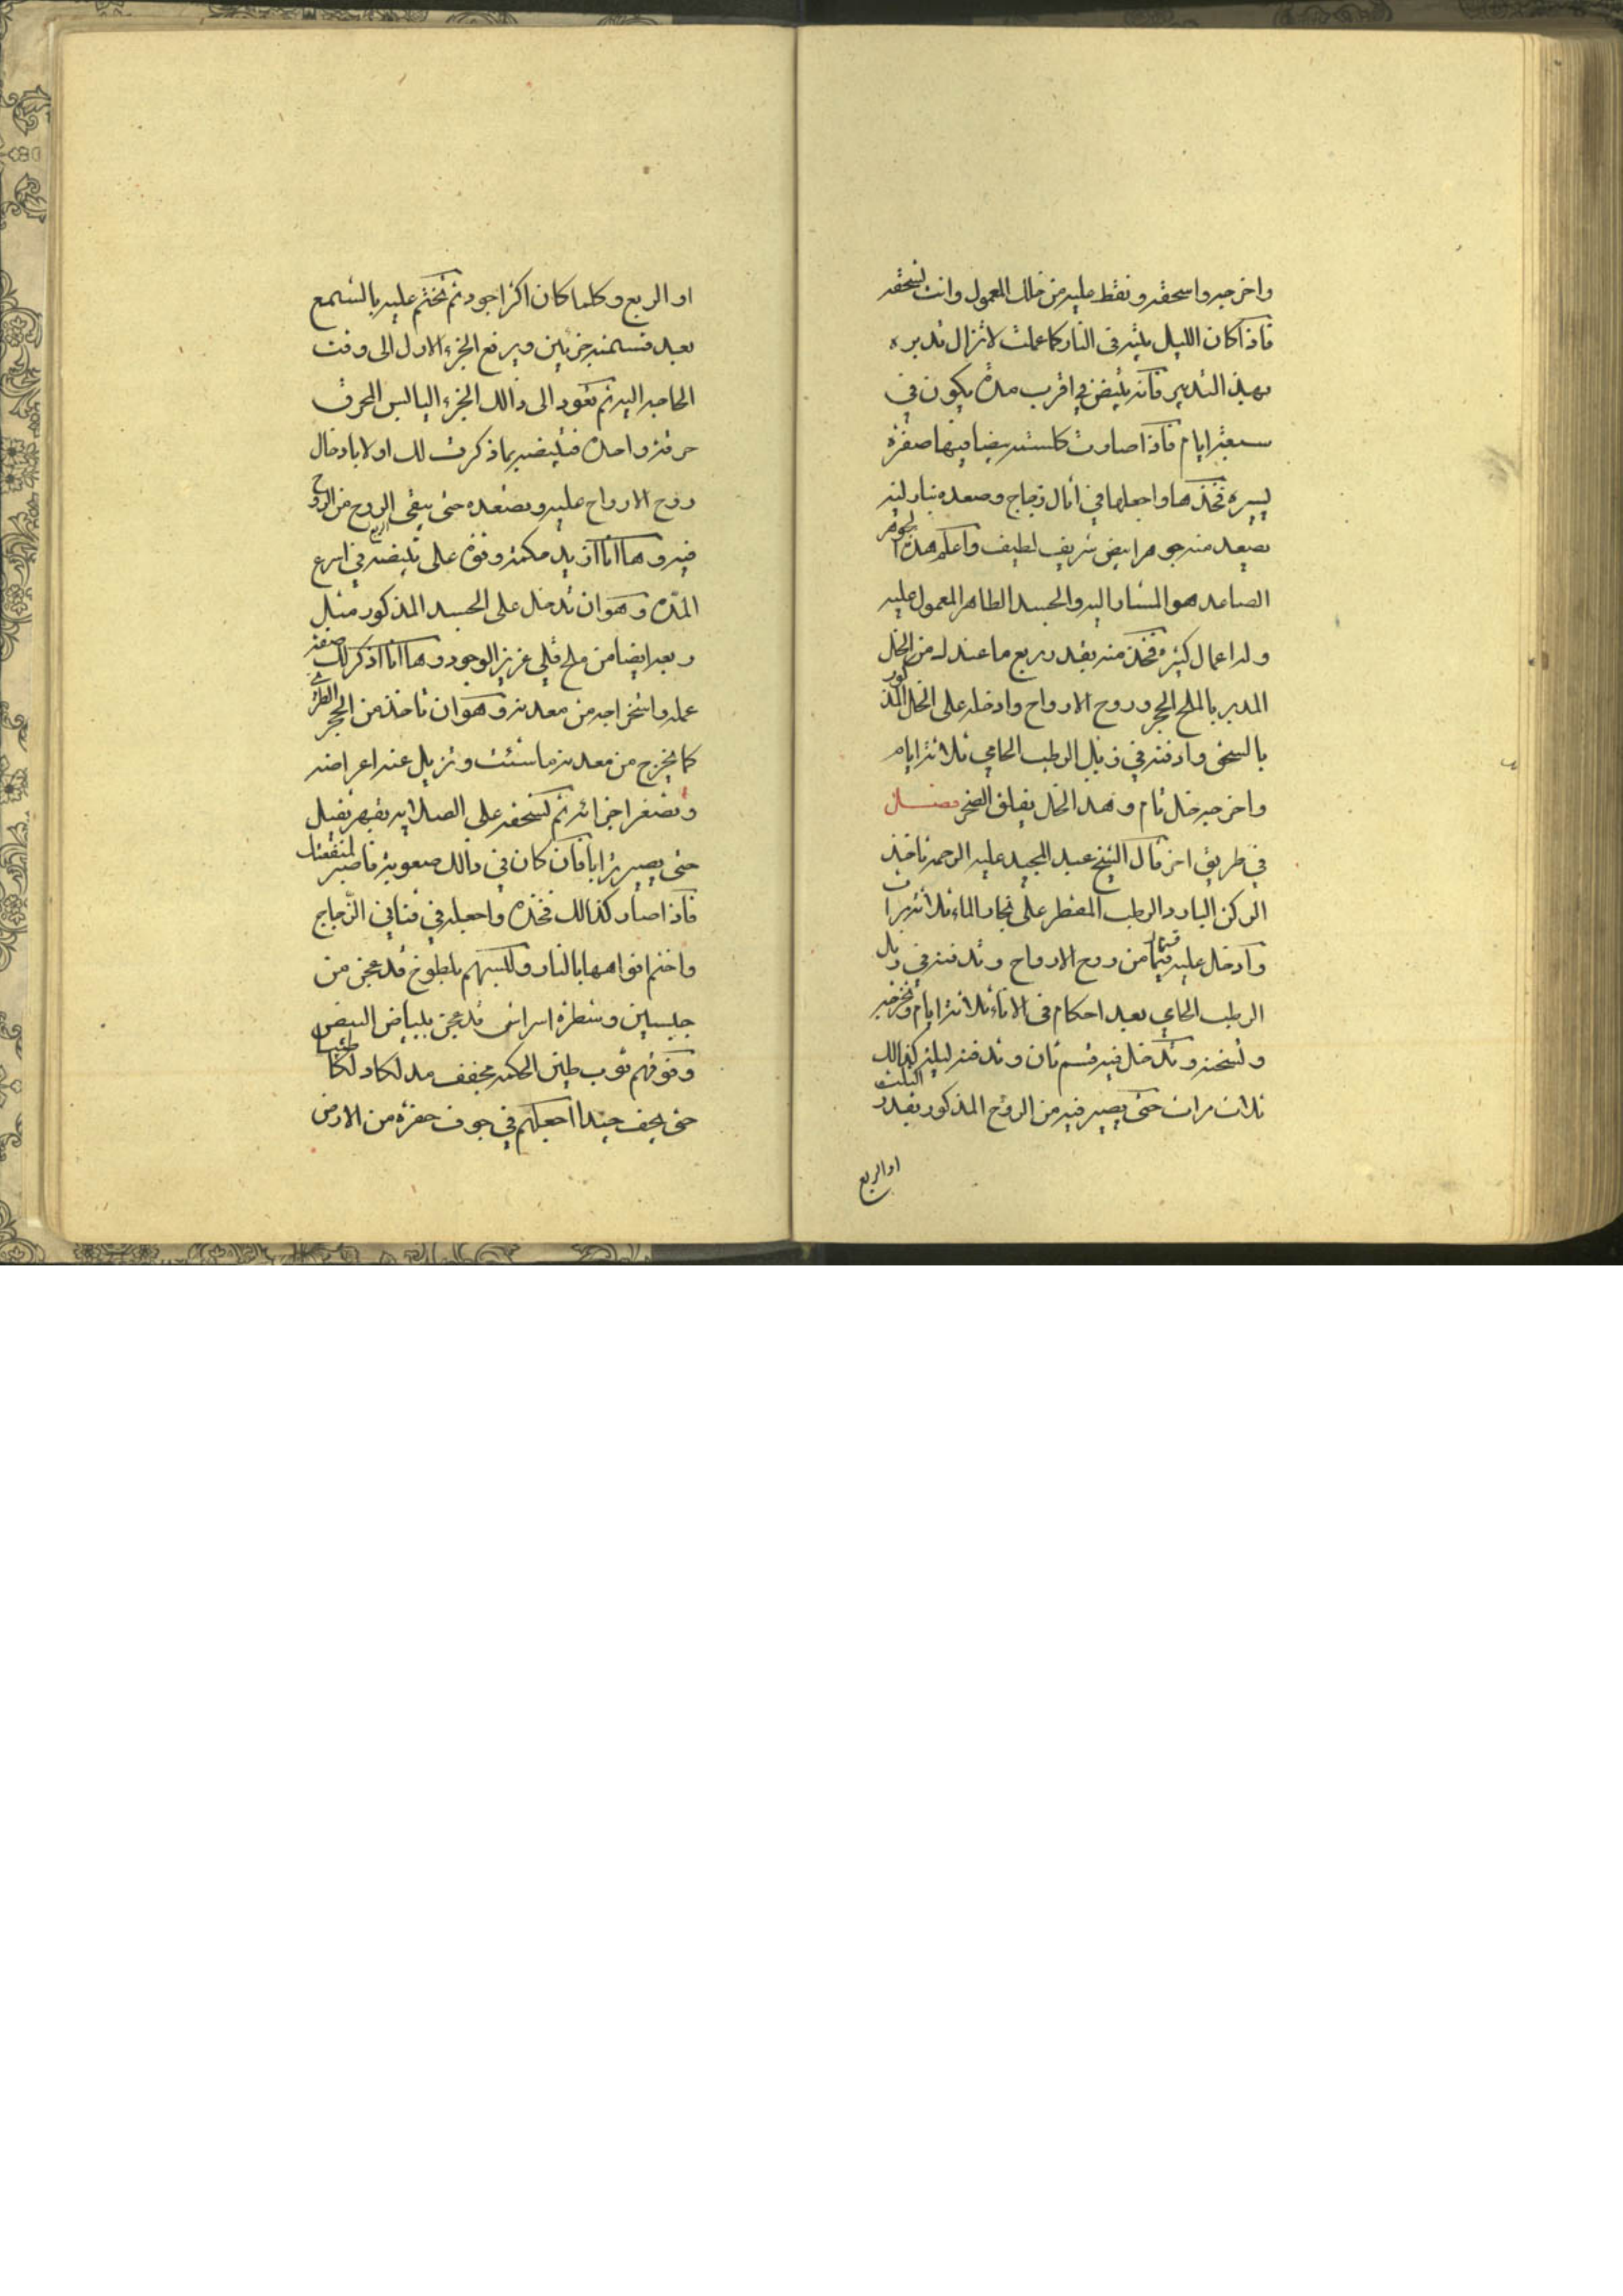 واخرجه واسحقه ونقط عليه من خلك المعمول وانت تسحقه
فاذا كان الليل بيته في النار كما عملت لا تزال تدبره
بهذ التدبير فانه يبيض في اقرب مدة يكون في
سبعة ايام فاذا صارت كلسته بيضا فيها صفرة
يسيره فخذها واجعلها في اثال زجاج وصعده بنار لينه
يصعد منه جوهر ابيض شريف لطيف واعلم هذا الجوهر
الصاعد هو المشار اليه والجسد الطاهر المعمول عليه
وله اعمال كثيرة فخذ منه بقدر ربع ما عندك من الخل
المدبر بالملح الحجر وروح الارواح وادخله على الخل المذكور
بالسحق وادفنه في زبل الرطب الحامي ثلاثة ايام
واخرجه خل تام وهذ الخل يفلق الصخر فصل
في طريق اخر قال الشيخ عبد المجيد عليه الرحمه تاخذ
الركن البارد الرطب المقطر على بخار الماء ثلاثة مرات
وادخل عليه قيمات من روح الارواح وتدفنه في زبل
الرطب الحامي بعد احكام في الاناء ثلاثة ايام وتخرجه
وتسخنه وتدخل فيه قسم ثان وتدفنه ليلة كذالك
ثلاث مرات حتى يصير فيه من الروح المذكور بقدر الثلث
او الربع
او الربع وكلما كان اكثر اجود ثم تختم عليه بالشمع
بعد قسمته جزئين ويرفع الجزء الاول الى وقت
الحاجه اليه ثم تعود الى ذالك الجزء اليابس المحرق
حرقة واحدة فتبيضه بما ذكرت لك اولا بادخال
روح الارواح عليه وتصعده حتى يبقى الروح من الروح
فيه وها انا ازيد حكمة وقوة على تبيضه في اسرع
المدة وهو ان تدخل على الجسد المذكور مثل
ربعه ايضا من ملح قلي عزيز الوجود وها انا اذكر لك صفة
عمله واستخراجه من معدنه وهو ان تاخذ من الحجر الطري
كما يخرج من معدنه ما شئت وتزيل عنه اعراضه
وتصغر اجزائه ثم تسحقه على الصلايه بفهر ثقيل
حتى يصير ترابا فان كان في ذالك صعوبة فاصبر لمنفعتك
فاذا صار كذالك فخذه واجعله في قناني الزجاج
واختم افواهها بالنار ولكسهم بلطوخ قد عجن من
جبسين وشطرة اسراس قد عجن ببياض البيض
وفوقهم ثوب طين الحكمه مجفف مدلكا دلكا طيبا
حتى يجف جيدا اجعلهم في جوف حفرة من الارض